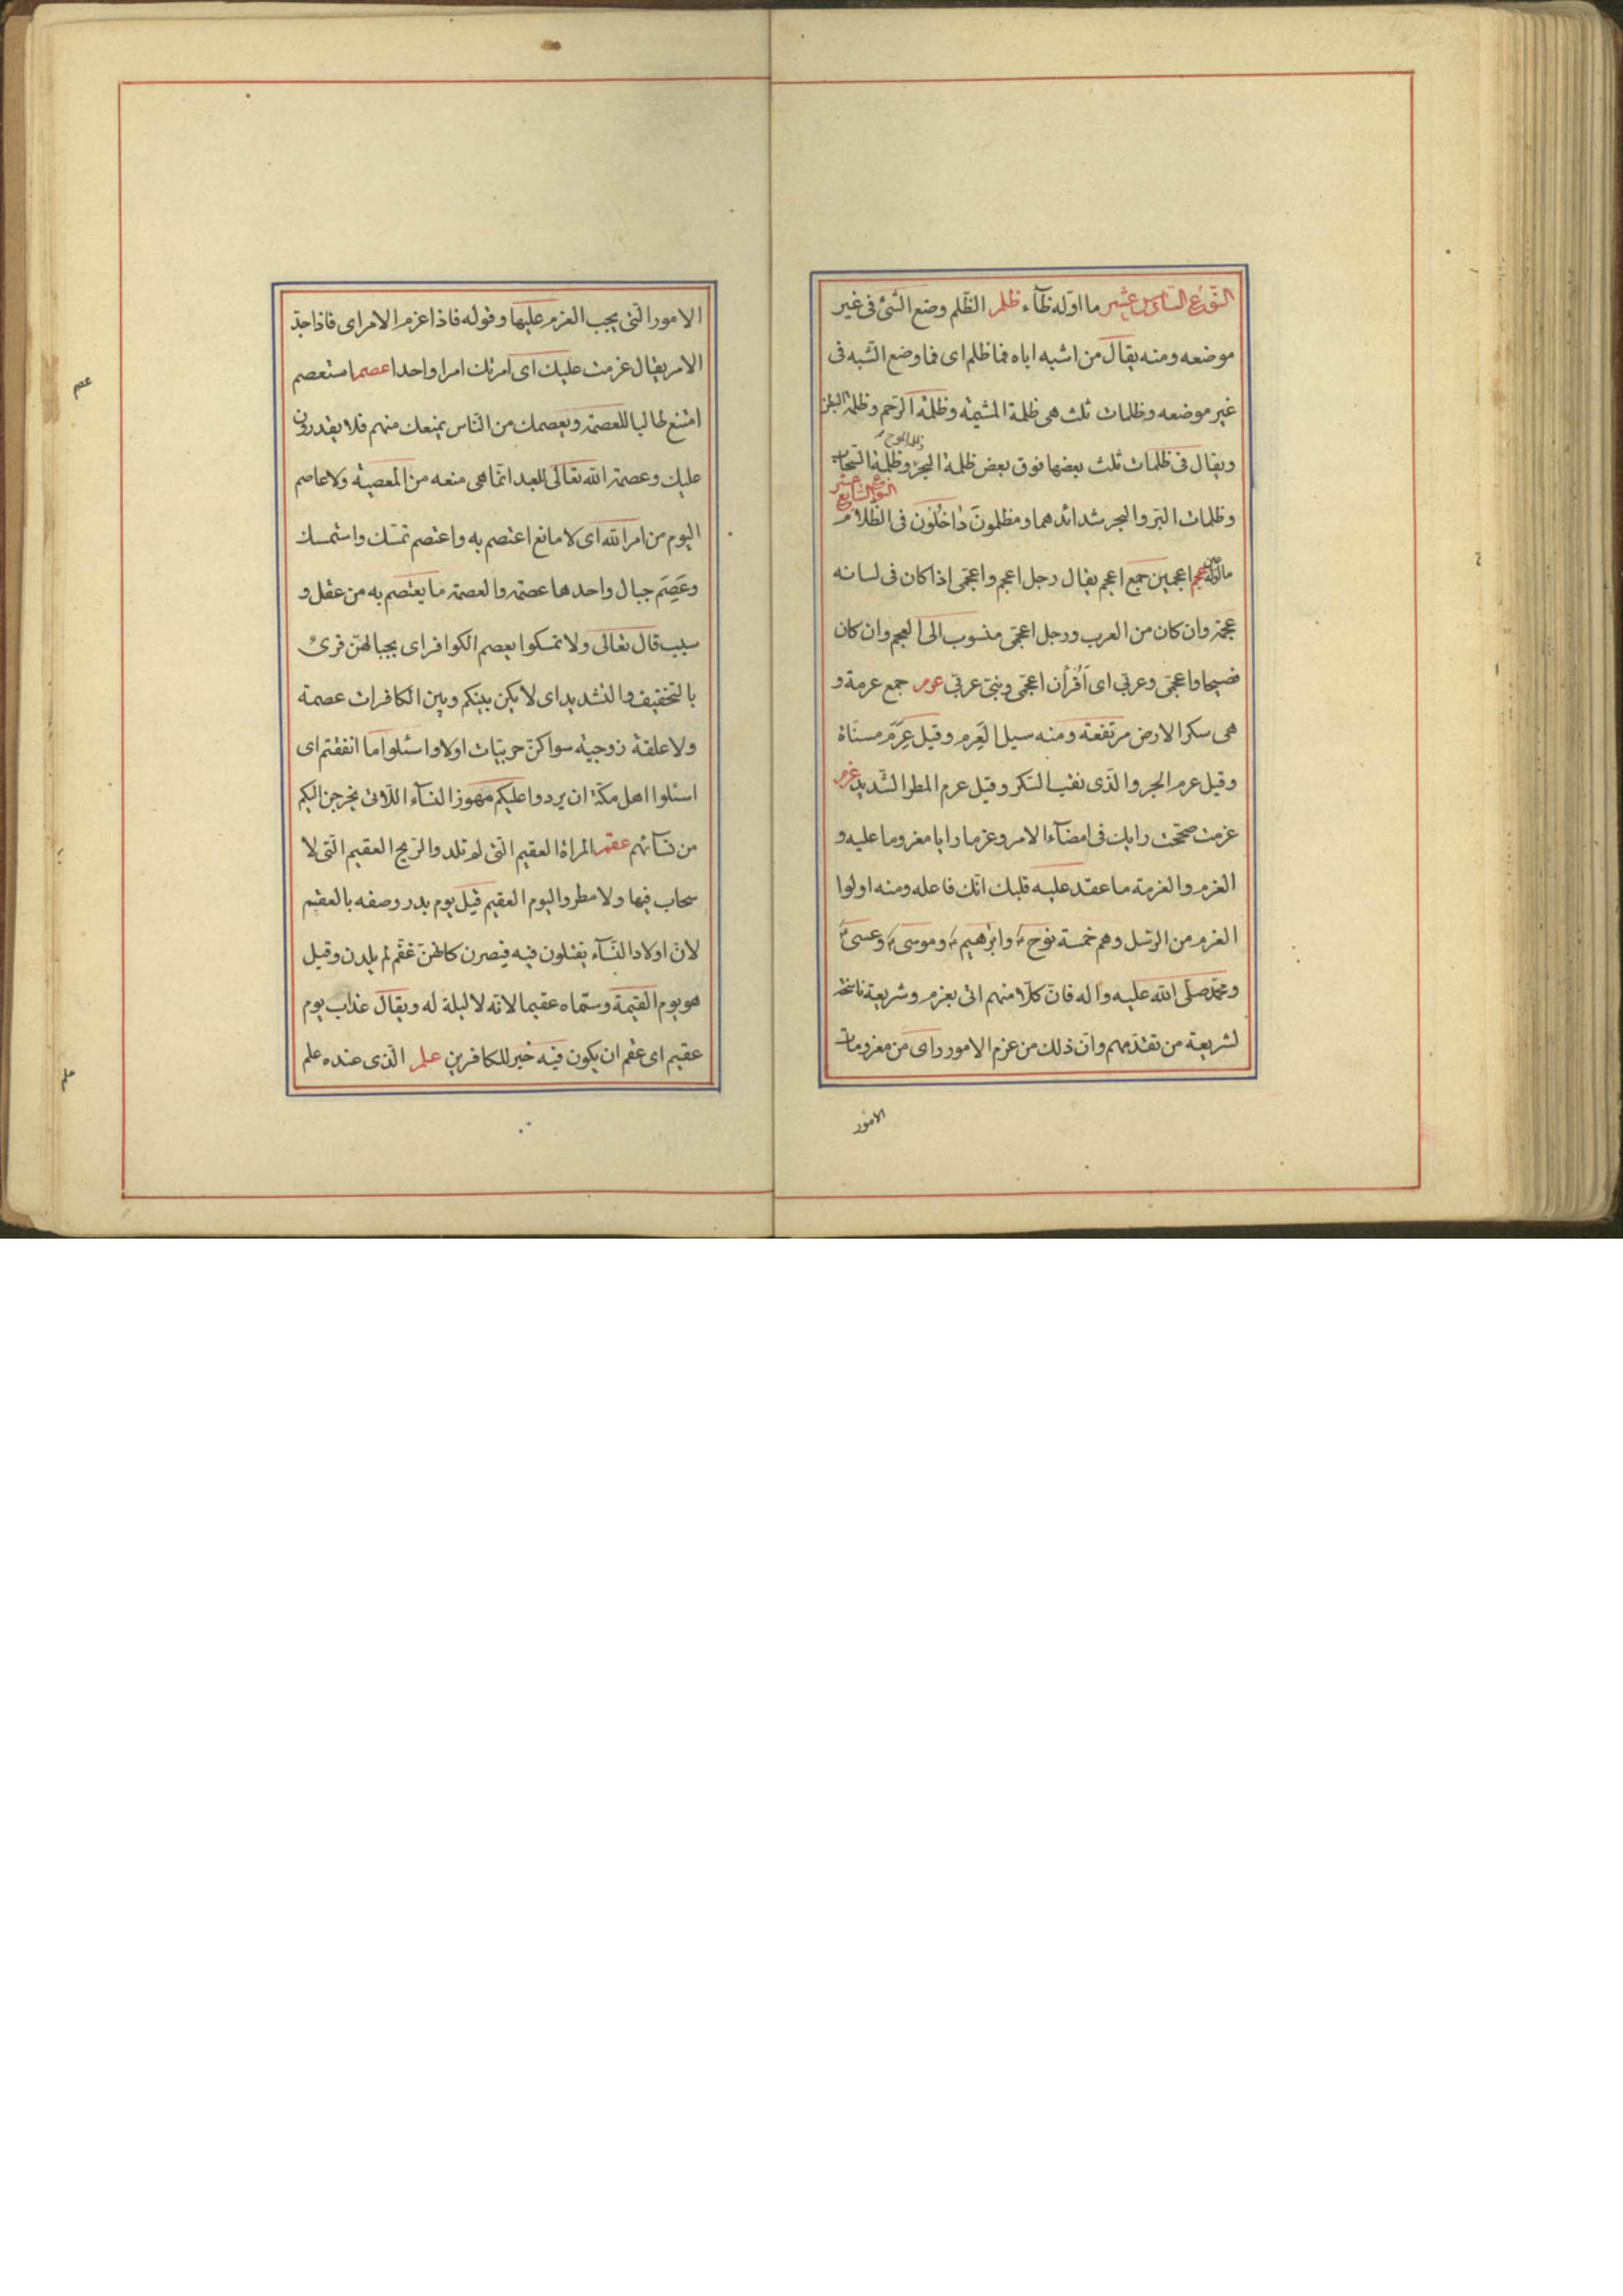 النّوع السّادس عشر ما اوّله ظآء ظلم الظّلم وضع الشّئ فى غير
موضعه ومنه يقال من اشبه اباه فما ظلم اى فما وضع الشّبه فى
غير موضعه وظلمات ثلث هى ظلمة المشيمة وظلمة الرّحم وظلمة البطن
ويقال فى ظلمات ثلث بعضها فوق بعض ظلمة البحر وظلمة السّحاب
ظلمة الموج
النّوع السّابع عشر
وظلمات البرّ والبحر شدائدهما ومظلمون داخلون فى الظّلام
ما اوّله عين عجم اعجمين جمع اعجم يقال رجل اعجم واعجمّى اذا كان فى لسانه
عجمة وان كان من العرب ورجل اعجمّى منسوب الى العجم وان كان
فصيحا واعجمّى وعربّى اى أقرأن اعجمّى ونبّى عربّى عرم جمع عرمة و
هى سكر الارض مرتفعة ومنه سيل العرم وقيل عرم مسنّاة
وقيل عرم الجرد الّذى نقب السّكر وقيل عرم المطر الشّديد عزم
عزمت صحّحت رايك فى امضآء الامر وعزما رايا معزوما عليه و
العزم والعزمة ما عقد عليه قلبك انّك فاعله ومنه اولوا
العزم من الرّسل وهم خمسة نوح وابرهيم وموسى وعيسى
ومحمّد صلّى الله عليه واله فانّ كلّا منهم اتى بعزم وشريعة ناسخة
لشريعة من تقدّمهم وانّ ذلك من عزم الامور راى من معزومات
الامور
الامور الّتى يجب العزم عليها وقوله فاذا عزم الامر اى فاذا جدّ
الامر يقال عزمت عليك اى امرتك امرا واحدا عصم استعصم
عصم
امتنع طالبا للعصمة ويعصمك من النّاس يمنعك منهم فلا يقدرون
عليك وعصمة الله تعالى للعبد انّما هى منعه من المعصية ولا عاصم
اليوم من امر الله اى لا مانع اعتصم به واعتصم تمسّك واستمسك
وعَصَم حبال واحدها عصمة والعصمة ما يعتصم به من عقل و
سبب قال تعالى ولا تمسكوا بعصم الكوافر اى بحبالهنّ قرئ
بالتخفيف والتشديد اى لا يكن بينكم وبين الكافرات عصمة
ولا علقة زوجية سوا كنّ حربيّات اولا واسئلوا ما انفقتم اى
اسئلوا اهل مكّة ان يردوا عليكم مهور النسآء اللّاتى يخرجن اليكم
من نسآئهم عقم المراة العقيم التى لم تلد والرّيح العقيم الّتى لا
سحاب فيها ولا مطر واليوم العقيم قيل يوم بدر وصفه بالعقيم
لانّ اولاد النّسآء يقتلون فيه فيصرن كانّهنّ عقّم لم يلدن وقيل
هو يوم القيمة وسمّاه عقيما لانّه لا ليلة له ويقال عذاب يوم
عقيم اى عقم ان يكون فيه خير للكافرين علم الّذى عنده علم
علم